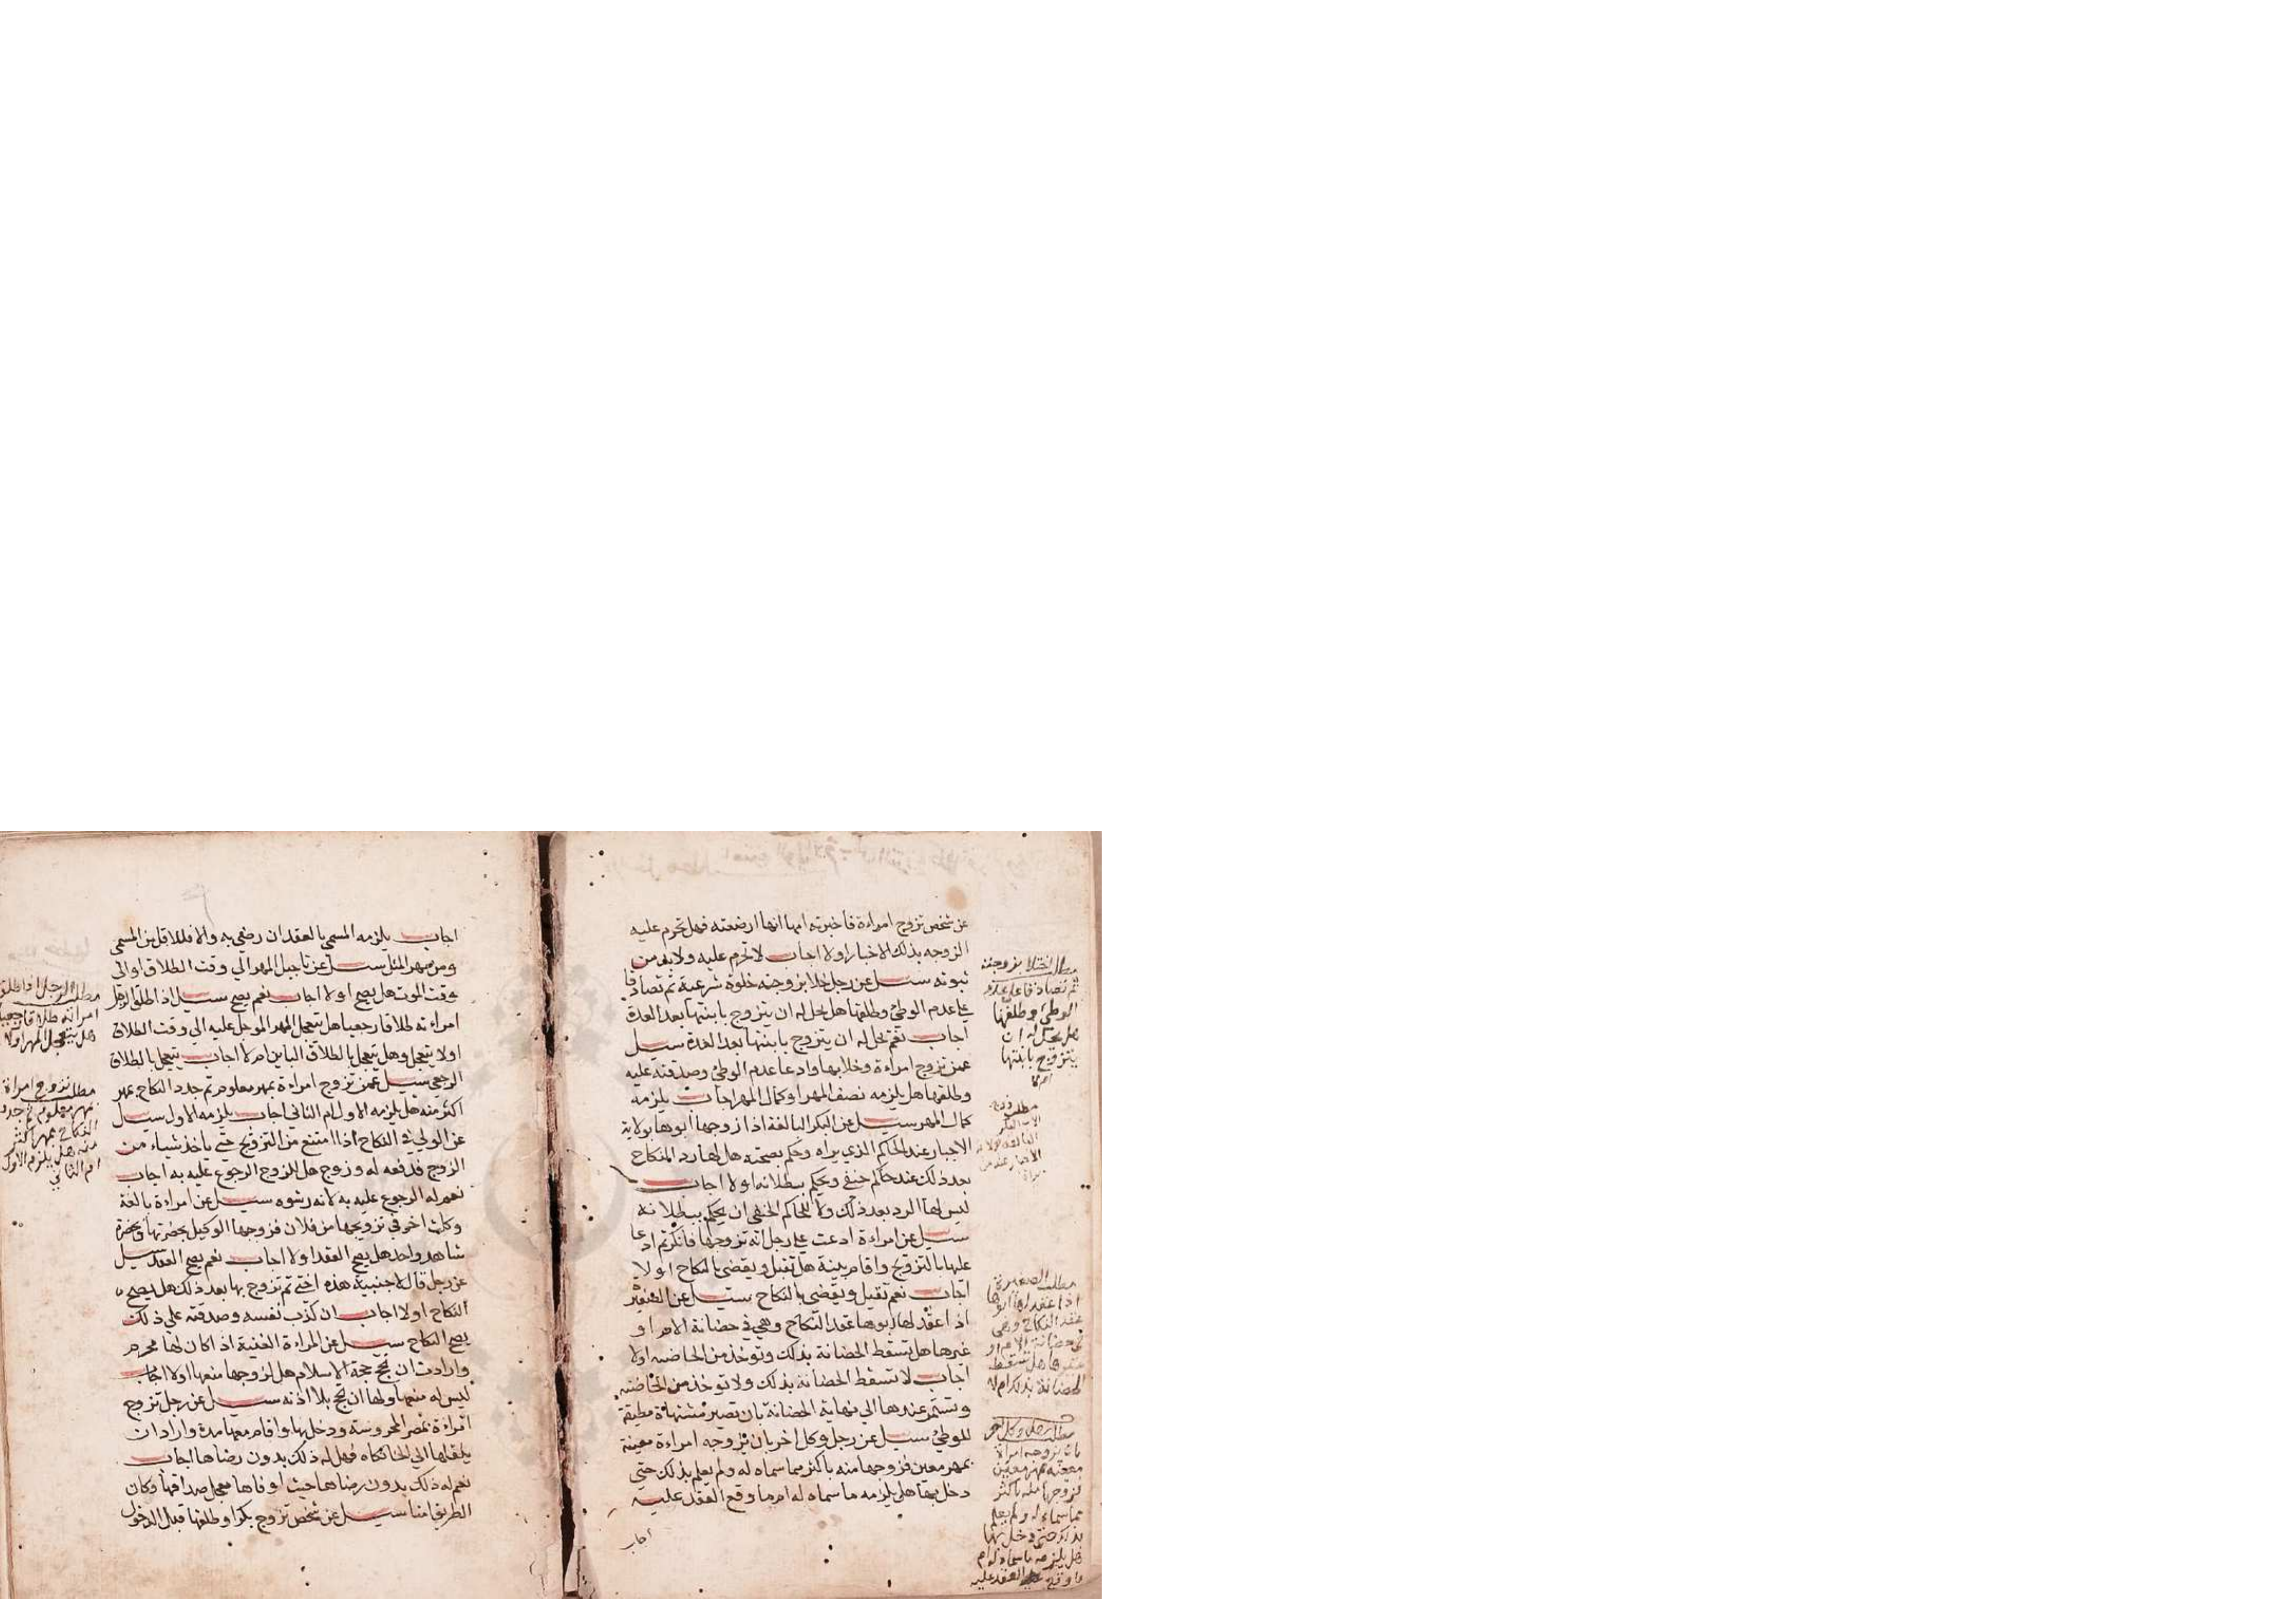 عن شخص تزوج امراءة فاخبرته امها انها ارضعته فهل تحرم عليه
الزوجه بذلك الاخبار اولا اجاب لا تحرم عليه ولا بد من
ثبوته سيل عن رجل خلا بزوجته خلوة شرعية ثم تصادقا
علي عدم الوطئ وطلقها هل يحل له ان يتزوج بابنتها بعد العدة
اجاب نعم يحل له ان يتزوج بابنتها بعد العدة سيل
عمن تزوج امراءة وخلا بها وادعا عدم الوطئ وصدقته عليه
وطلقها هل يلزمه نصف المهر او كمال المهر اجاب يلزمه
كمال المهر سيل عن البكر البالغة اذا زوجها ابوها بولاية
الاجبار عند الحاكم الذي يراه وحكم بصحته هل لها رد النكاح
بعد ذلك عند حاكم حنفي ويحكم ببطلانه اولا اجاب
ليس لها الرد بعد ذلك ولا للحاكم الحنفي ان يحكم ببطلانه
سيل عن امراءة ادعت علي رجل انه تزوجها فانكر ثم ادعا
عليها بالتزويج واقام بينة هل تقبل ويقضي بالنكاح اولا
اجاب نعم تقبل ويقضي بالنكاح سيل عن الصغيرة
اذا عقد لها ابوها عقد النكاح وهي في حضانة الام او
غيرها هل تسقط الحضانة بذلك وتوخذ من الحاضنه اولا
اجاب لا تسقط الحضانة بذلك ولا توخذ من الحاضنه
وتستمر عندها الي نهاية الحضانة بان تصير مشتهاة مطيقة
للوطئ سيل عن رجل وكل اخر بان يزوجه امراءة معينة
بمهر معين فزوجها منه باكثر مما سماه له ولم يعلم بذلك حتي
دخل بها هل يلزمه ما سماه له ام ما وقع العقد عليه
اجاب
مطلب اختلا بزوجته
ثم تصادقا علي عدم
الوطئ وطلقها
هل يحل له ان
يتزوج بابنتها
ام لا
مطلب زوج
الاب البكر
البالغه بولاية
الاجبار عند من
يراه
مطلب الصغيرة
اذا عقد لها ابوها
عقد النكاح وهي
في حضانة الام او
غيرها هل تسقط
الحضانة بذلك ام لا
مطلب رجل وكل اخر
بان يزوجه امراة
معينه بمهر معين
فزوجها منه باكثر
مما سماه له ولم يعلم
بذلك حتي دخل بها
هل يلزمه ما سماه له ام
ما وقع العقد عليه
اجاب يلزمه المسمي بالعقد ان رضي به والا فللاقل من المسمي
ومن مهر المثل سيل عن تاجيل المهر الي وقت الطلاق او الي
وقت الموت هل يصح اولا اجاب نعم يصح سيل اذا طلق الرجل
امراءته طلاقا رجعيا هل يتعجل المهر الموجل عليه الي وقت الطلاق
او لا يتعجل وهل يتعجل بالطلاق الباين ام لا اجاب يتعجل بالطلاق
الرجعي سيل عمن تزوج امراءة بمهر معلوم ثم جدد النكاح بمهر
اكثر منه هل يلزمه الاول ام الثاني اجاب يلزمه الاول سيل
عن الولي في النكاح اذا امتنع من التزويج حتي ياخذ شياء من
الزوج فدفعه له وزوج هل للزوج الرجوع عليه به اجاب
نعم له الرجوع عليه به لانه رشوه سيل عن امراءة بالغة
وكلت اخر في تزويجها من فلان فزوجها الوكيل بحضرتها وبحضرة
شاهد واحد هل يصح العقد اولا اجاب نعم يصح العقد سيل
عن رجل قال لاجنبية هذه اختي ثم تزوج بها بعد ذلك هل يصح
النكاح اولا اجاب ان كذب نفسه وصدقته علي ذلك
يصح النكاح سيل عن المراءة الغنية اذا كان لها محرم
وارادت ان تحج حجة الاسلام هل لزوجها منعها اولا اجاب
ليس له منعها ولها ان تحج بلا اذنه سيل عن رجل تزوج
امراءة بمصر المحروسة ودخل بها واقام معها مدة واراد ان
ينقلها الي الخانكاه فهل له ذلك بدون رضاها اجاب
نعم له ذلك بدون رضاها حيث اوفاها معجل صداقها وكان
الطريق امنا سيل عن شخص تزوج بكرا وطلقها قبل الدخول
مطلب الرجل اذا طلق
امراته طلاقا رجعيا
هل يتعجل المهر اولا
مطلب تزوج امراة
بمهر معلوم ثم جدد
النكاح بمهر اكثر
منه هل يلزم الاول
ام الثاني